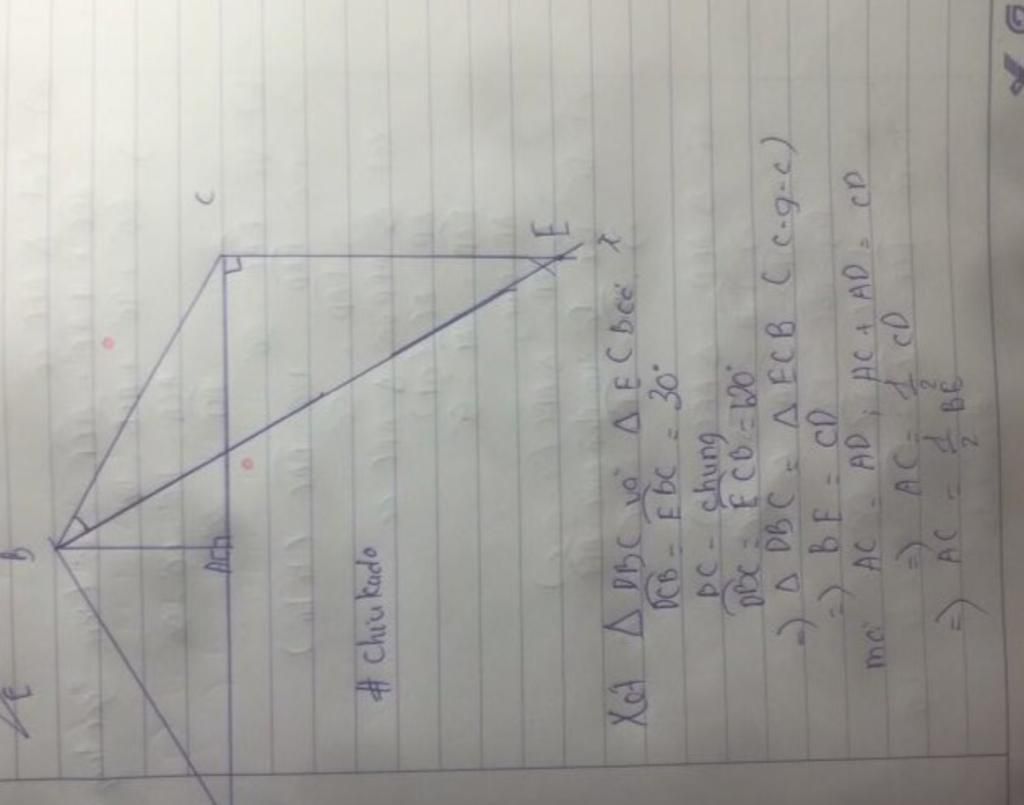 B
C
E
x
# Chiukado
Xét Δ DBC và Δ ECB có
DCB = EBC = 30°
DC = chung
DBC = ECB = 120°
=) Δ DBC = Δ ECB ( c-g-c)
=) BE = CD
mà AC = AD ; AC + AD = CD
=) AC = 1/2 CD
=) AC = 1/2 BE